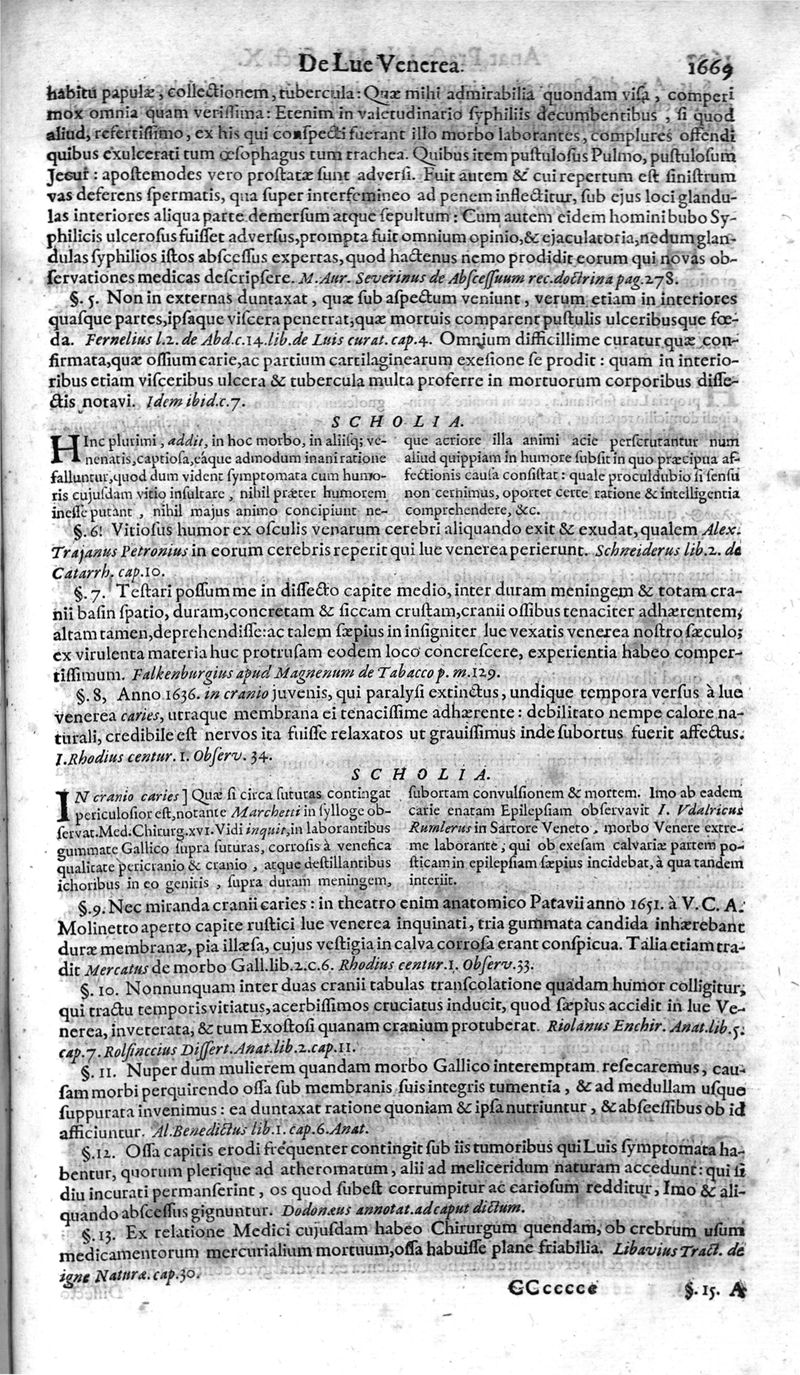 De Lue Venerea. 1669
habitu papulæ, collectionem, tubercula: Quæ mihi admirabilia quondam visa, comperi
mox omnia quam verissima: Etenim in valetudinario syphiliis decumbentibus, si quod
aliud, refertissimo, ex his qui conspecti fuerant illo morbo laborantes, complures offendi
quibus exulcerati tum œsophagus tum trachea. Quibus item pustulosus Pulmo, pustulosum
Jecur: apostemodes vero prostatæ sunt adversi. Fuit autem & cui repertum est sinistrum
vas deferens spermatis, qua super interfemineo ad penem inflectitur, sub ejus loci glandu-
las interiores aliqua parte demersum atque sepultum: Cum autem eidem homini bubo Sy-
philicis ulcerosus fuisset adversus, prompta fuit omnium opinio, & ejaculatoria, nedum glan-
dulas syphilios istos abscessus expertas, quod hactenus nemo prodidit eorum qui novas ob-
servationes medicas descripsere. M. Aur. Severinus de Abscessuum rec. doctrina pag. 278.
§. 5. Non in externas duntaxat, quæ sub aspectum veniunt, verum etiam in interiores
quasque partes, ipsaque viscera penetrat, quæ mortuis comparent pustulis ulceribusque fœ-
da. Fernelius l. 2. de Abd. c. 14. lib. de Luis curat. cap. 4. Omnium difficillime curatur quæ con-
firmata, quæ ossium carie, ac partium cartilaginearum exesione se prodit: quam in interio-
ribus etiam visceribus ulcera & tubercula multa proferre in mortuorum corporibus disse-
ctis notavi. Idem ibid. c. 7.
SCHOLIA.
HInc plurimi, addit, in hoc morbo, in aliisq; ve-
nenatis, captiosa, eaque admodum inani ratione
falluntur, quod dum vident symptomata cum humo-
ris cujusdam vitio insultare, nihil præter humorem
inesse putant, nihil majus animo concipiunt ne-
que acriore illa animi acie perscrutantur num
aliud quippiam in humore subsit in quo præcipua af-
fectionis causa consistat: quale proculdubio si sensu
non cernimus, oportet certe ratione & intelligentia
comprehendere, &c.
§. 6. Vitiosus humor ex osculis venarum cerebri aliquando exit & exudat, qualem Alex.
Trajanus Petronius in eorum cerebris reperit qui lue venerea perierunt. Schneiderus lib. 2. de
Catarrh. cap. 10.
§. 7. Testari possum me in dissecto capite medio, inter duram meningem & totam cra-
nii basin spatio, duram, concretam & siccam crustam, cranii ossibus tenaciter adhærentem,
altam tamen, deprehendisse: ac talem sæpius in insigniter lue vexatis venerea nostro sæculo,
ex virulenta materia huc protrusam eodem loco concrescere, experientia habeo comper-
tissimum. Falkenburgius apud Magnenum de Tabacco p. m. 129.
§. 8, Anno 1636. in cranio juvenis, qui paralysi extinctus, undique tempora versus à lue
venerea caries, utraque membrana ei tenacissime adhærente: debilitato nempe calore na-
turali, credibile est nervos ita fuisse relaxatos ut gravissimus inde subortus fuerit affectus.
I. Rhodius centur. 1. Observ. 34.
SCHOLIA.
IN cranio caries] Quæ si circa suturas contingat
periculosior est, notante Marchetti in sylloge ob-
servat. Med. Chirurg. xvi. Vidi inquit, in laborantibus
gummate Gallico supra suturas, corrosis à venefica
qualitate pericranio & cranio, atque destillantibus
ichoribus in eo genitis, supra duram meningem,
subortam convulsionem & mortem. Imo ab eadem
carie enatam Epilepsiam observavit I. Vdalricus
Rumlerus in Sartore Veneto, morbo Venere extre-
me laborante, qui ob exesam calvariæ partem po-
sticam in epilepsiam sæpius incidebat, à qua tandem
interiit.
§. 9. Nec miranda cranii caries: in theatro enim anatomico Patavii anno 1651. à V. C. A.
Molinetto aperto capite rustici lue venerea inquinati, tria gummata candida inhærebant
duræ membranæ, pia illæsa, cujus vestigia in calva corrosa erant conspicua. Talia etiam tra-
dit Mercatus de morbo Gall. lib. 2. c. 6. Rhodius centur. 1. Observ. 33.
§. 10. Nonnunquam inter duas cranii tabulas transcolatione quadam humor colligitur,
qui tractu temporis vitiatus, acerbissimos cruciatus inducit, quod sæpius accidit in lue Ve-
nerea, inveterata, & tum Exostosi quanam cranium protuberat. Riolanus Enchir. Anat. lib. 5.
cap. 7. Rolfinccius Dissert. Anat. lib. 2. cap. 11.
§. 11. Nuper dum mulierem quandam morbo Gallico interemptam resecaremus, cau-
sam morbi perquirendo ossa sub membranis suis integris tumentia, & ad medullam usque
suppurata invenimus: ea duntaxat ratione quoniam & ipsa nutriuntur, & abscessibus ob id
afficiuntur. Al. Benedictus lib. 1. cap. 6. Anat.
§. 12. Ossa capitis erodi frequenter contingit sub iis tumoribus qui Luis symptomata ha-
bentur, quorum plerique ad atheromatum, alii ad meliceridum naturam accedunt: qui si
diu incurati permanserint, os quod subest corrumpitur ac cariosum redditur, Imo & ali-
quando abscessus gignuntur. Dodonæus annotat. ad caput dictum.
§. 13. Ex relatione Medici cujusdam habeo Chirurgum quendam, ob crebrum usum
medicamentorum mercurialium mortuum, ossa habuisse plane friabilia. Libavius Tract. de
igne Naturæ. cap. 30.
CCccccc §. 15. A